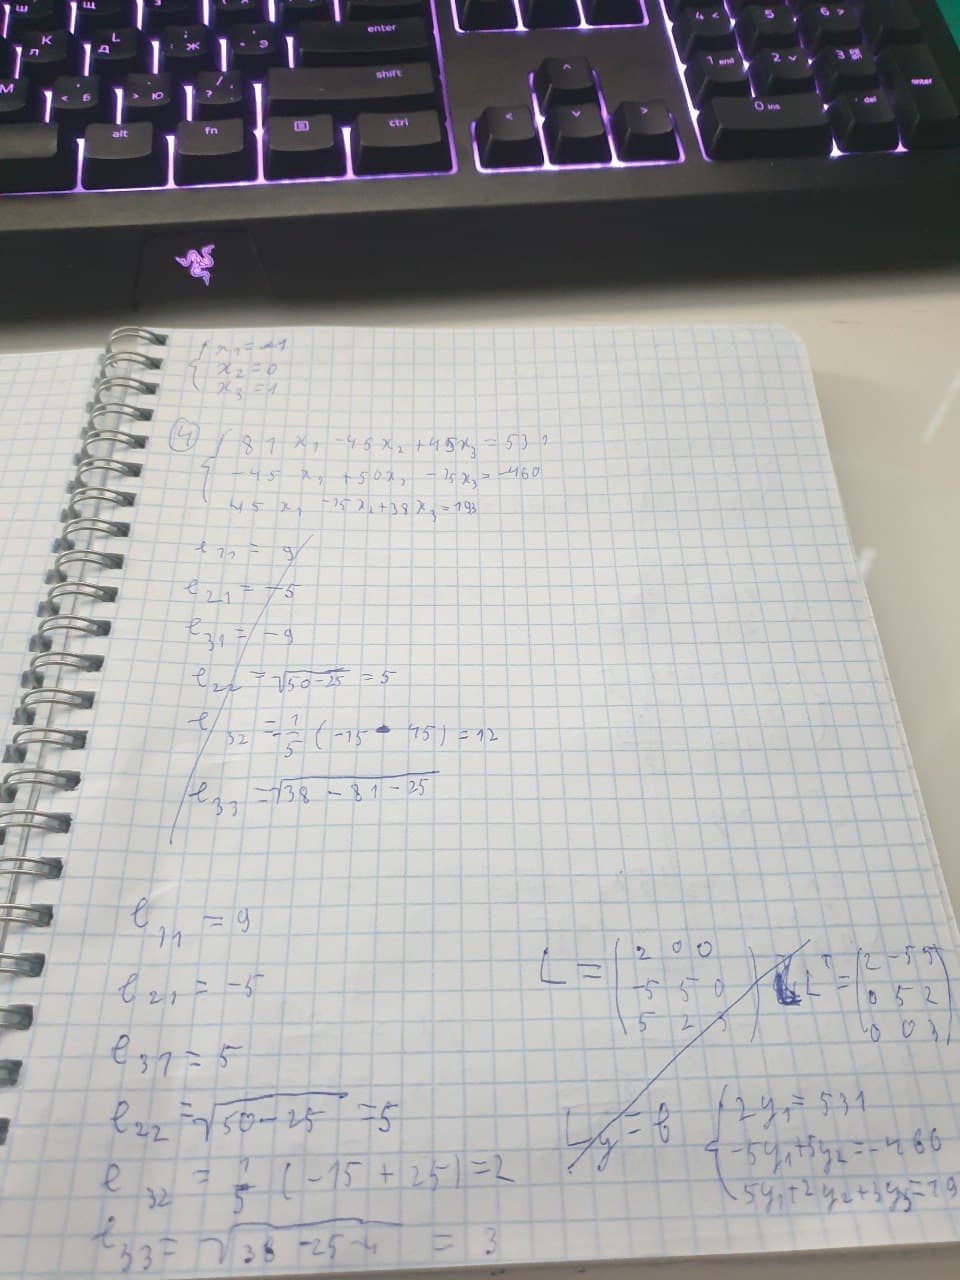 ш щ
enter
4 < 5 6 >
К л L д : ; Ж " ' Э
shift
1 end 2 ∨ 3
enter
М < , Б > . Ю ? /
0 ins . del
alt fn ctrl
< ∨ > ^
x₁ = -1
x₂ = 0
x₃ = 1
④ 81 x₁ - 45x₂ + 45x₃ = 531
-45 x₁ + 50x₂ - 15x₃ = -460
45 x₁ - 15x₂ + 38x₃ = 193
l₁₁ = 9
l₂₁ = -5
l₃₁ = -9
l₂₂ = √(50-25) = 5
l₃₂ = 1/5 (-15 - 45) = 12
l₃₃ = √(38 - 81 - 25)
l₁₁ = 9
l₂₁ = -5
l₃₁ = 5
l₂₂ = √(50-25) = 5
l₃₂ = 1/5 (-15 + 25) = 2
l₃₃ = √(38 -25-4) = 3
L = (2 0 0
-5 5 0
5 2 3)
Lᵀ = (2 -5 5
0 5 2
0 0 3)
Ly = b
2y₁ = 531
-5y₁+5y₂ = -460
5y₁+2y₂+3y₃=19